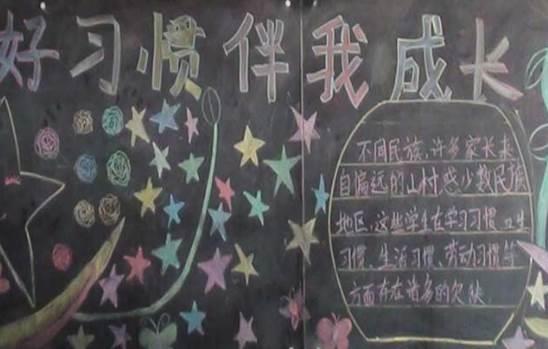 好习惯伴我成长
不同民族,许多家长来
自偏远的山村或少数民族
地区,这些学生在学习习惯、卫生
习惯、生活习惯、劳动习惯等
方面存在诸多的欠缺.